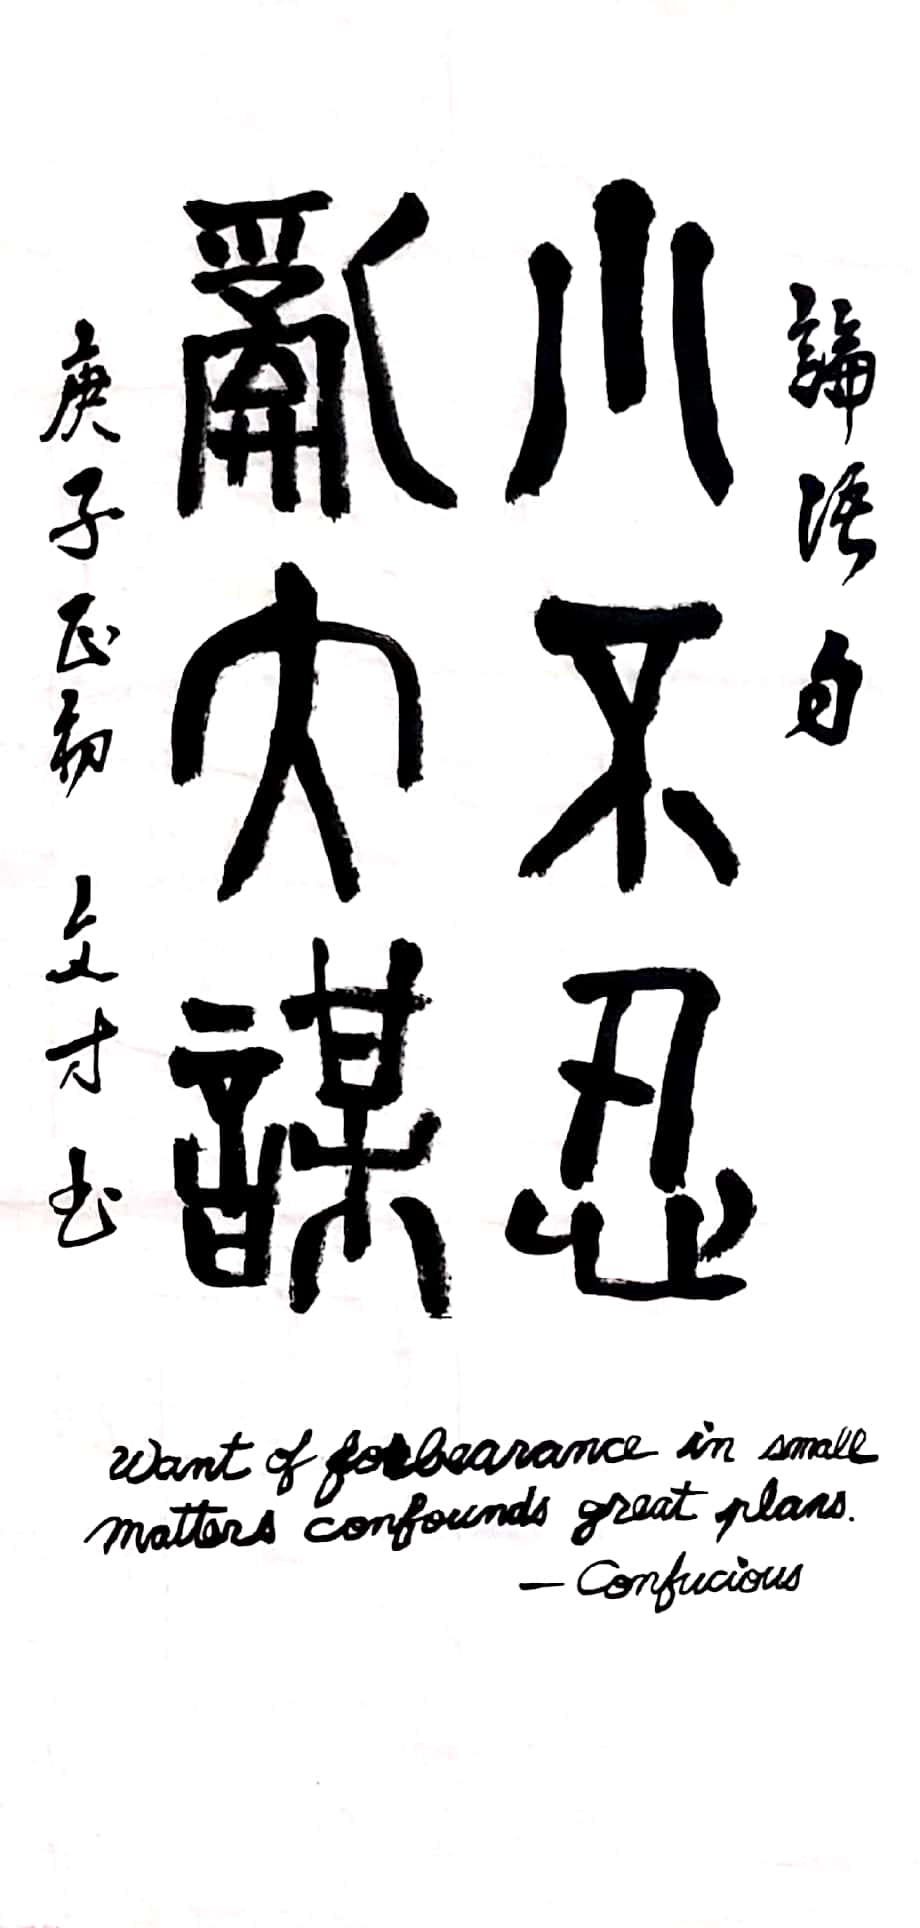 論语句
小不忍
亂大謀
庚子正初 文才书
Want of forbearance in small
matters confounds great plans.
— Confucious